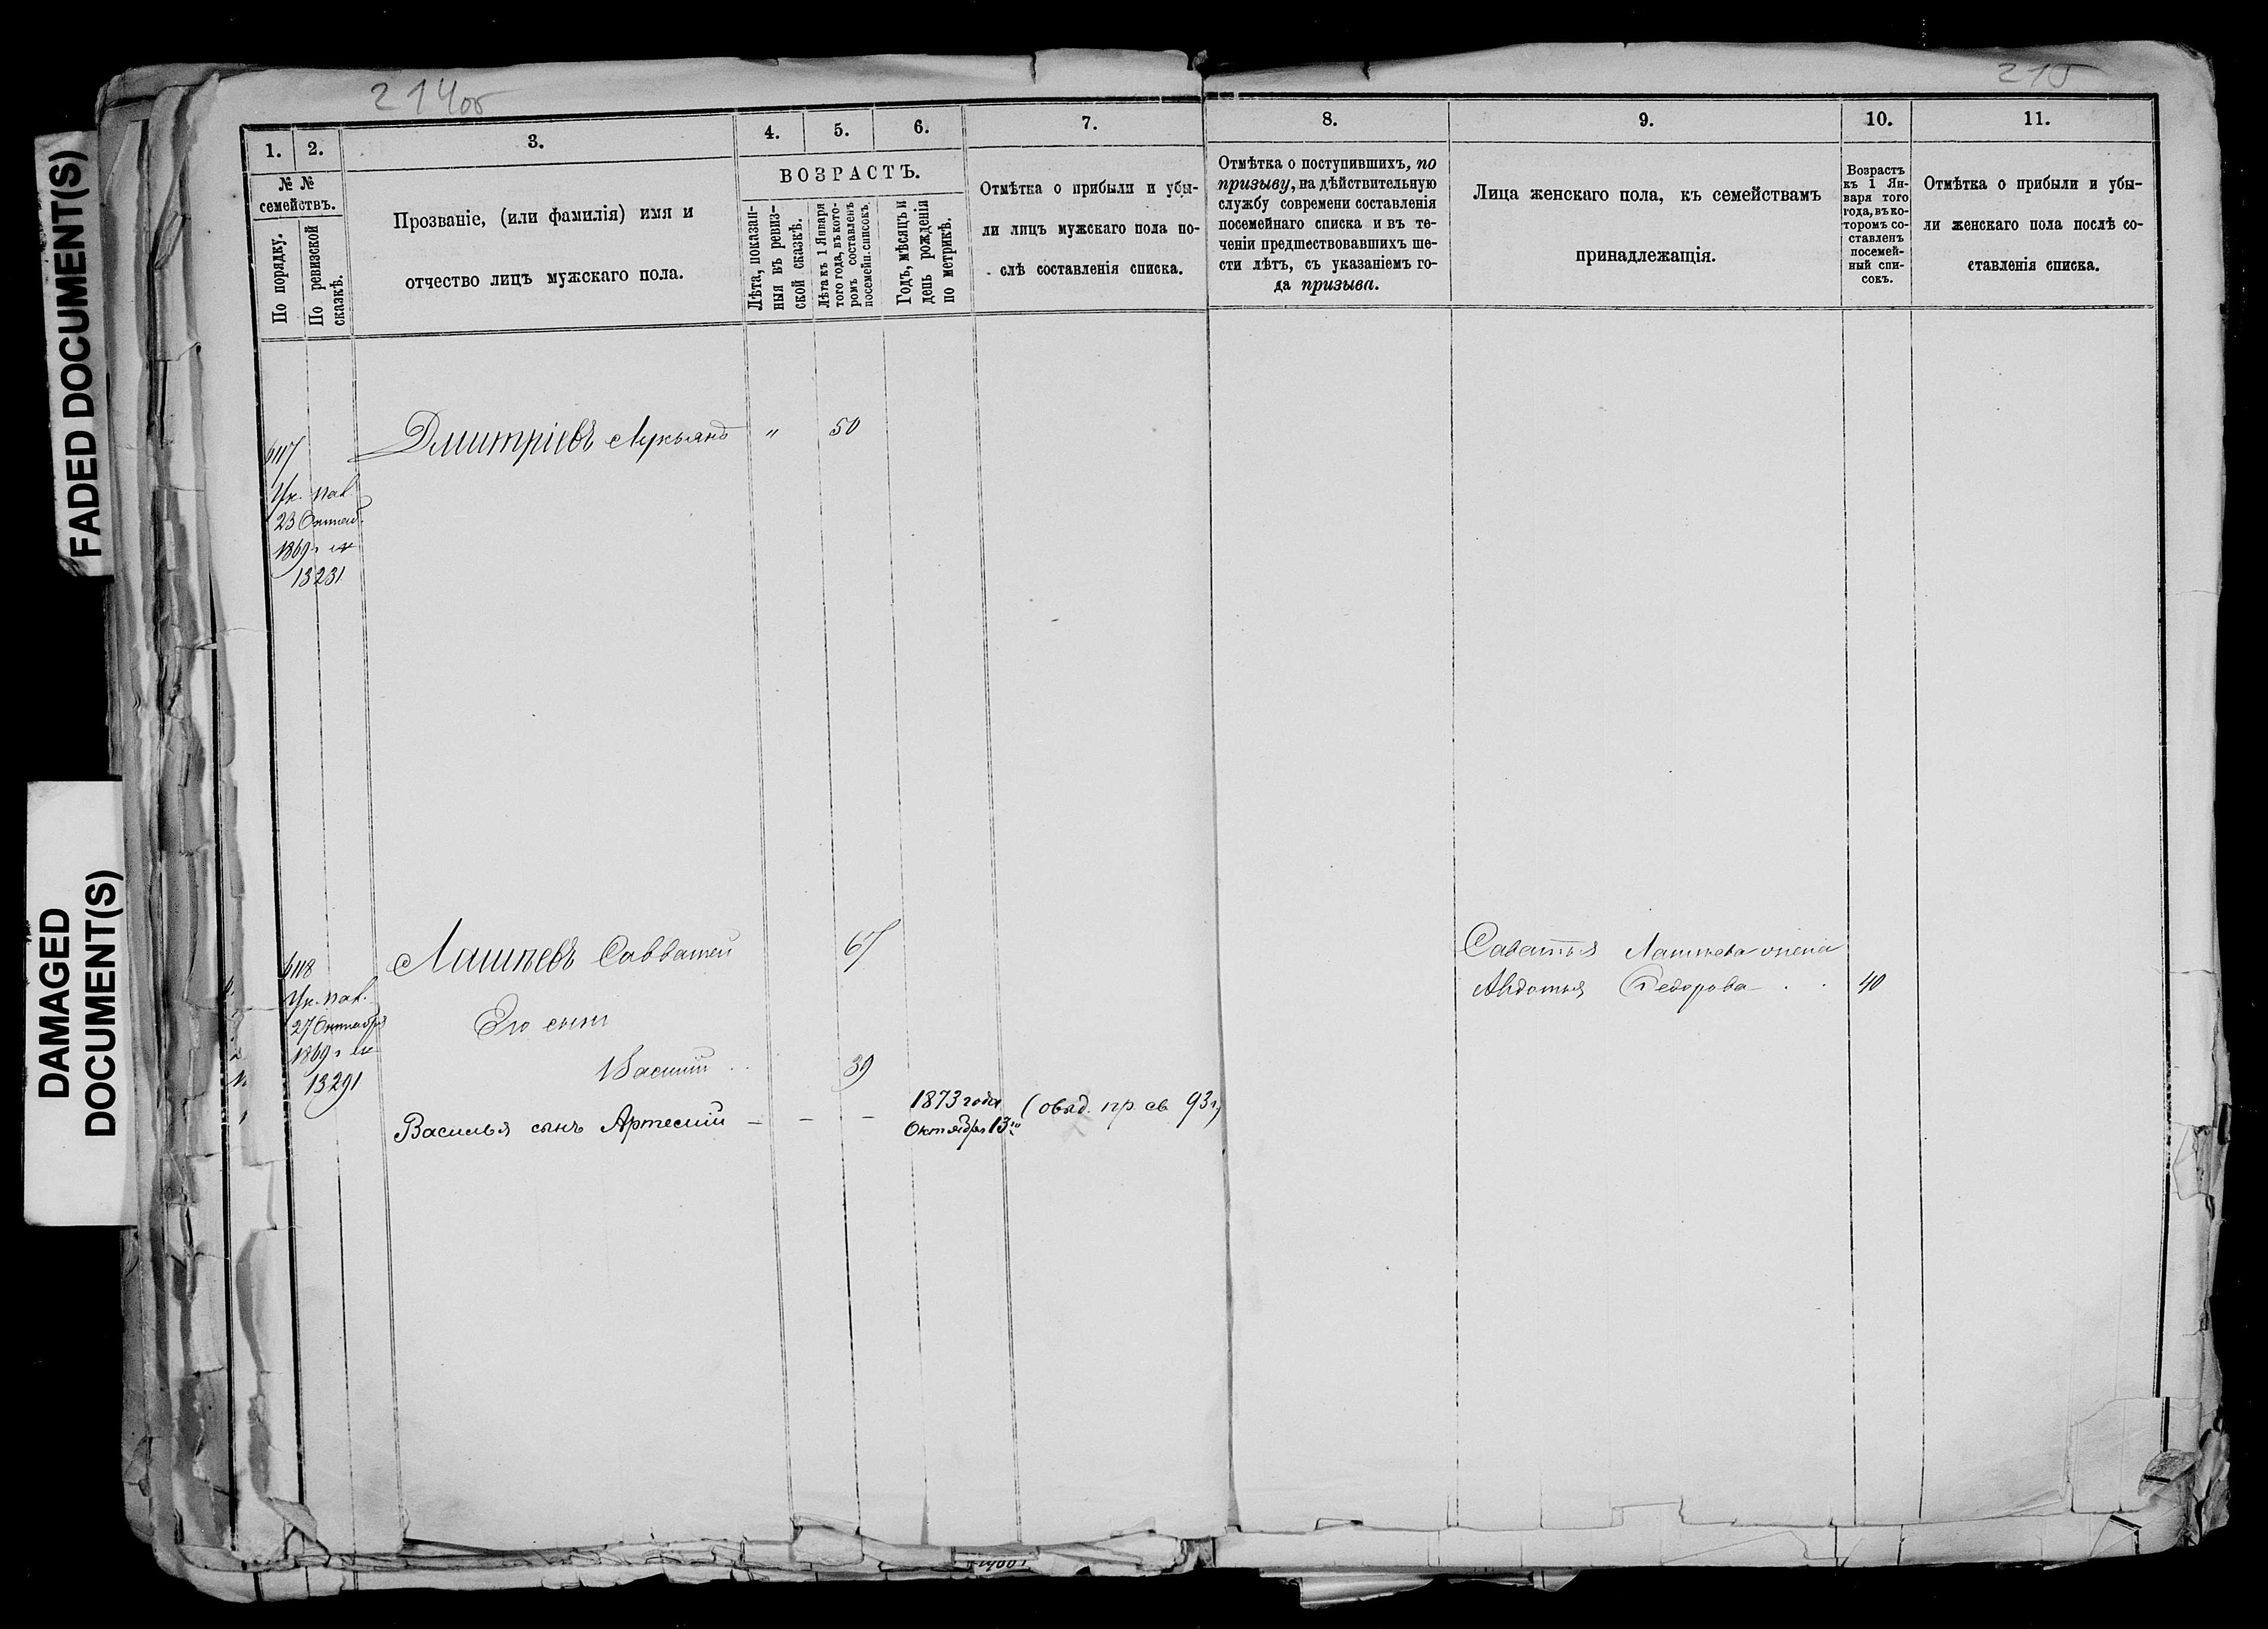 FADED DOCUMENT(S)
DAMAGED
DOCUMENT(S)
214об
215
1.
2.
3.
4.
5.
6.
7.
№ №
семействъ.
По порядку.
По ревизской
сказкѣ.
Прозваніе, (или фамилія) имя и
отчество лицъ мужскаго пола.
ВОЗРАСТЪ.
Лѣта, показан-
ныя въ ревиз-
ской сказкѣ.
Лѣта къ 1 Января
того года, въ кото-
ромъ составленъ
посемейн. списокъ.
Годъ, мѣсяцъ и
день рожденія
по метрикѣ.
Отмѣтка о прибыли и убы-
ли лицъ мужскаго пола по-
слѣ составленія списка.
8.
9.
10.
11.
Отмѣтка о поступившихъ, по
призыву, на дѣйствительную
службу современи составленія
посемейнаго списка и въ те-
ченіи предшествовавшихъ ше-
сти лѣтъ, съ указаніемъ го-
да призыва.
Лица женскаго пола, къ семействамъ
принадлежащія.
Возрастъ
къ 1 Ян-
варя того
года, въ ко-
торомъ со-
ставленъ
посемей-
ный спи-
сокъ.
Отмѣтка о прибыли и убы-
ли женскаго пола послѣ со-
ставленія списка.
6117
Ук. пал.
23 Октяб.
1869 г №
13231
Дмитріевъ Лукьянъ " 50
6118
Ук. пал.
27 Октября
1869 г №
13291
Лашневъ Савватей 67
Его сынъ
Василій . . 39
Василья сынъ Артемій – – –
1873 года
Октября 13го
пр. св 93 г)
Саватья Лашнева жена
Авдотья Федорова . . 40